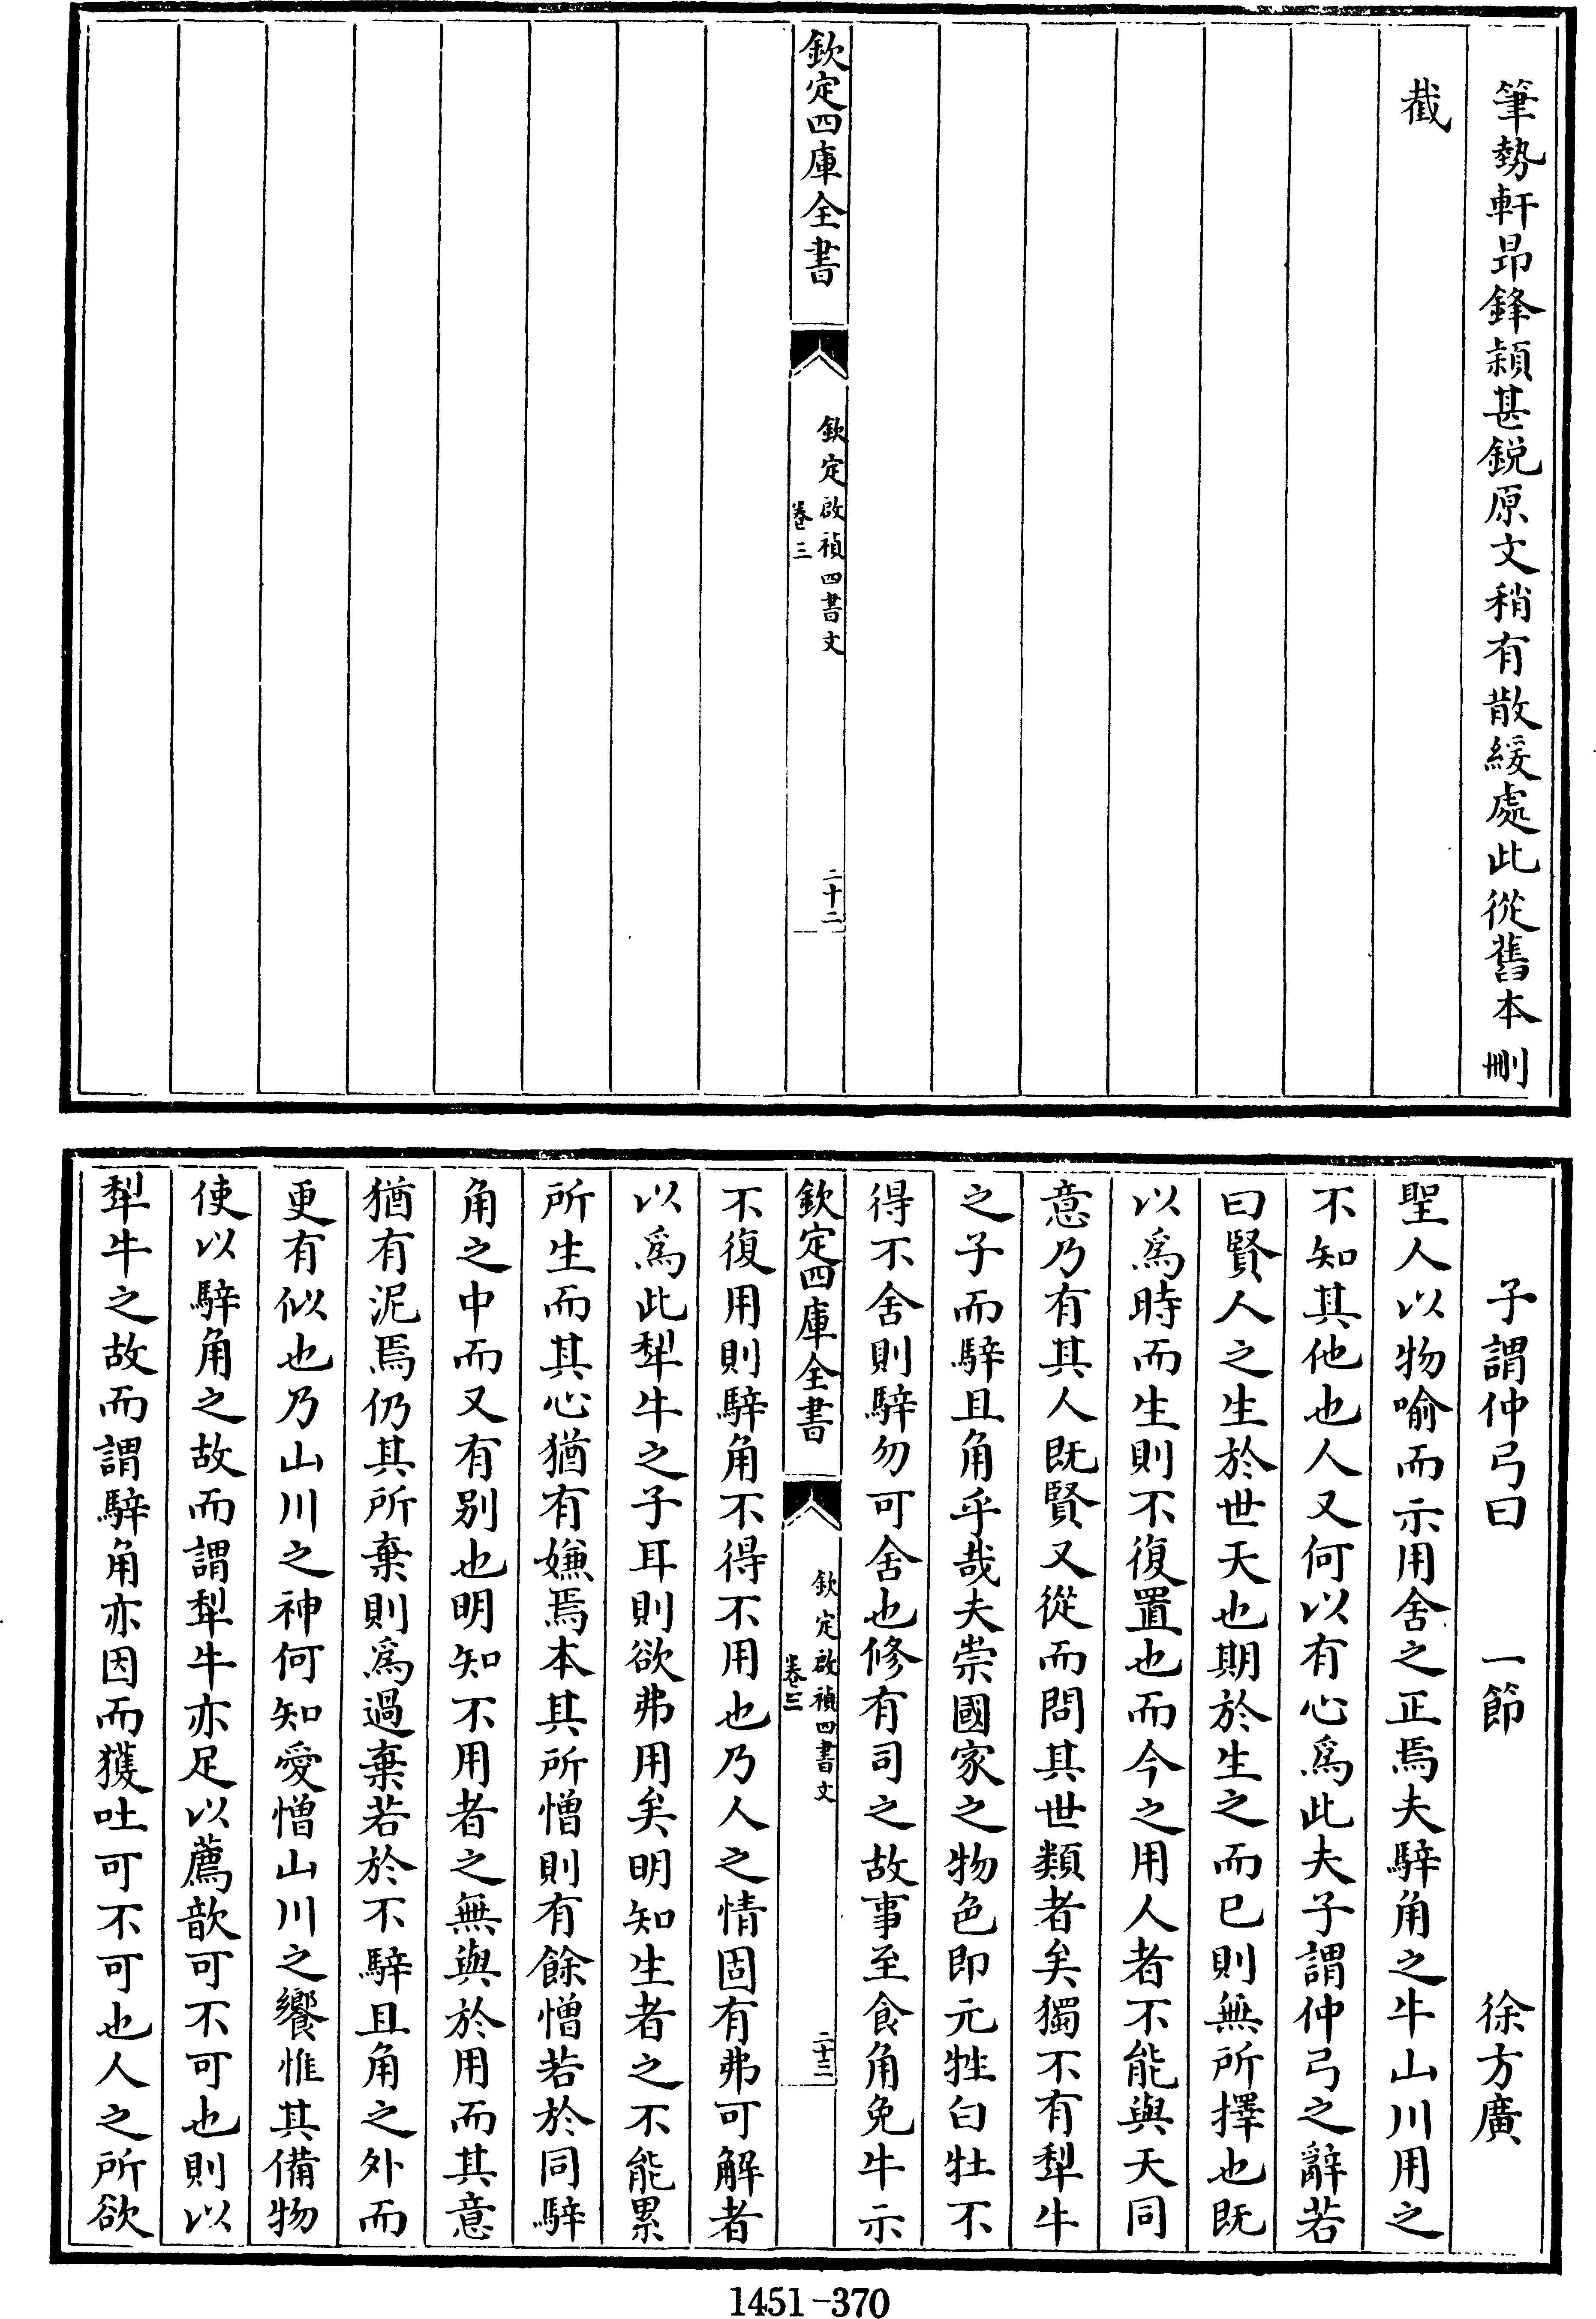 筆勢軒昂鋒頴甚銳原文稍有散緩處此從舊本刪
截
欽定四庫全書
欽定啟禎四書文
卷三
二十二
子謂仲弓曰 一節 徐方廣
聖人以物喻而示用舍之正焉夫騂角之牛山川用之
不知其他也人又何以有心為此夫子謂仲弓之辭若
曰賢人之生於世天也期於生之而已則無所擇也既
以為時而生則不復置也而今之用人者不能與天同
意乃有其人既賢又從而問其世類者矣獨不有犂牛
之子而騂且角乎哉夫崇國家之物色即元牲白牡不
得不舍則騂勿可舍也修有司之故事至食角免牛示
欽定四庫全書
欽定啟禎四書文
卷三
二十三
不復用則騂角不得不用也乃人之情固有弗可解者
以為此犂牛之子耳則欲弗用矣明知生者之不能累
所生而其心猶有嫌焉本其所憎則有餘憎若於同騂
角之中而又有別也明知不用者之無與於用而其意
猶有泥焉仍其所棄則為過棄若於不騂且角之外而
更有似也乃山川之神何知愛憎山川之饗惟其備物
使以騂角之故而謂犂牛亦足以薦歆可不可也則以
犂牛之故而謂騂角亦因而獲吐可不可也人之所欲
1451-370